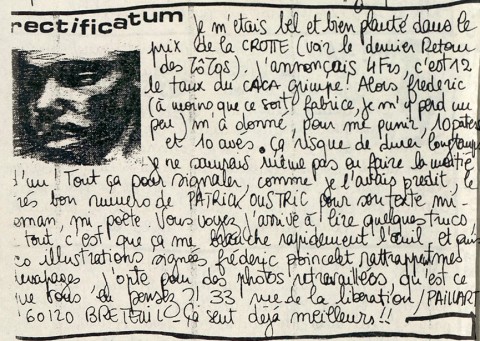 rectificatum
Je m'étais bel et bien planté dans le
prix de la CROTTE (voir le dernier Retour
des ZôZos). J'annonçais 4 Frs, c'est 12
le taux du CACA grimpe! Alors frédéric
(à moins que ce soit fabrice, je m'y perd un
peu) m'a donné, pour me punir, 10 paters
et 10 aves. ça risque de durer longtemps
je ne saurais même pas en faire la moitié
d'un! Tout ça pour signaler, comme je l'avais prédit, le
très bon numero de PATRICK OUSTRIC pour son texte mi-
roman, mi-poète. Vous voyez j'arrive à lire quelques trucs,
Tout c'est que ça me rapidement l'œuil et puis
illustrations signées fréderic poincelet rattrappent mes
j'opte pour des photos retravaillées, qu'est ce
que vous en pensez?! 33 rue de la libération / PAILLART
60120 BRETEUIL - ça sent déjà meilleurs!!